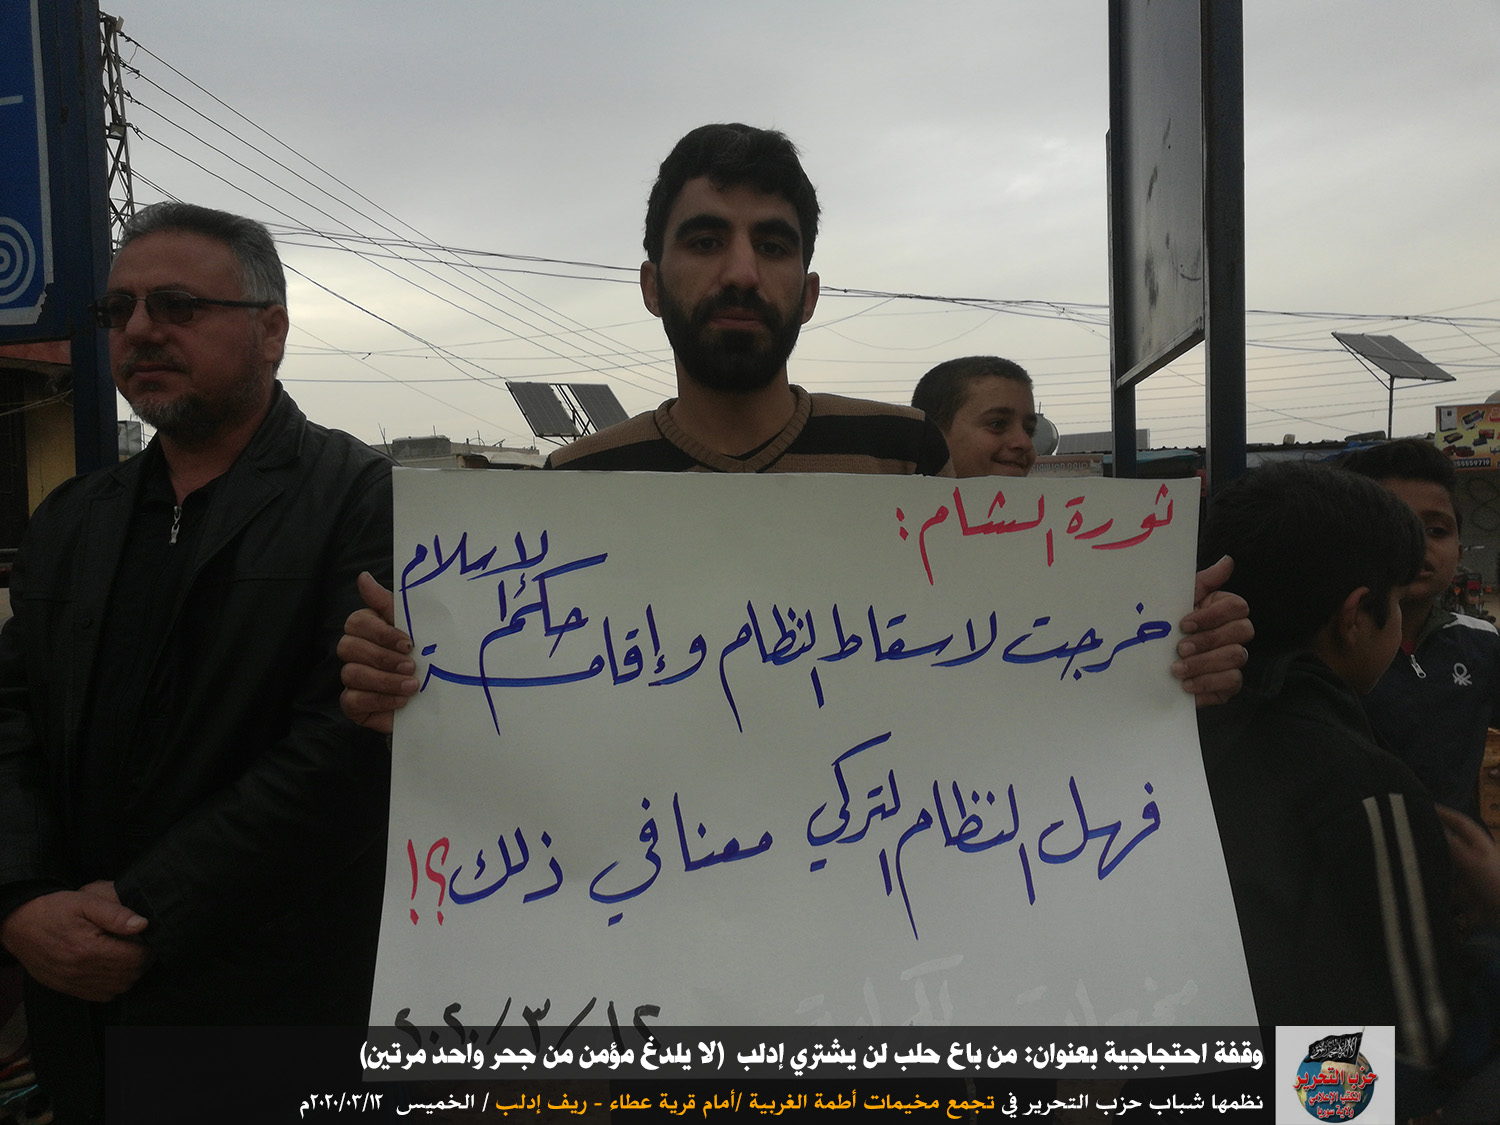 ثورة الشام :
خرجت لاسقاط النظام وإقامة حكم الإسلام
فهل النظام التركي معنا في ذلك ؟!
٢٠٢٠/٣/١٢
وقفة احتجاجية بعنوان: من باع حلب لن يشتري إدلب (لا يلدغ مؤمن من جحر واحد مرتين)
نظمها شباب حزب التحرير في تجمع مخيمات أطمة الغربية /أمام قرية عطاء - ريف إدلب / الخميس ٢٠٢٠/٠٣/١٢م
حزب التحرير
المكتب الإعلامي
ولاية سوريا